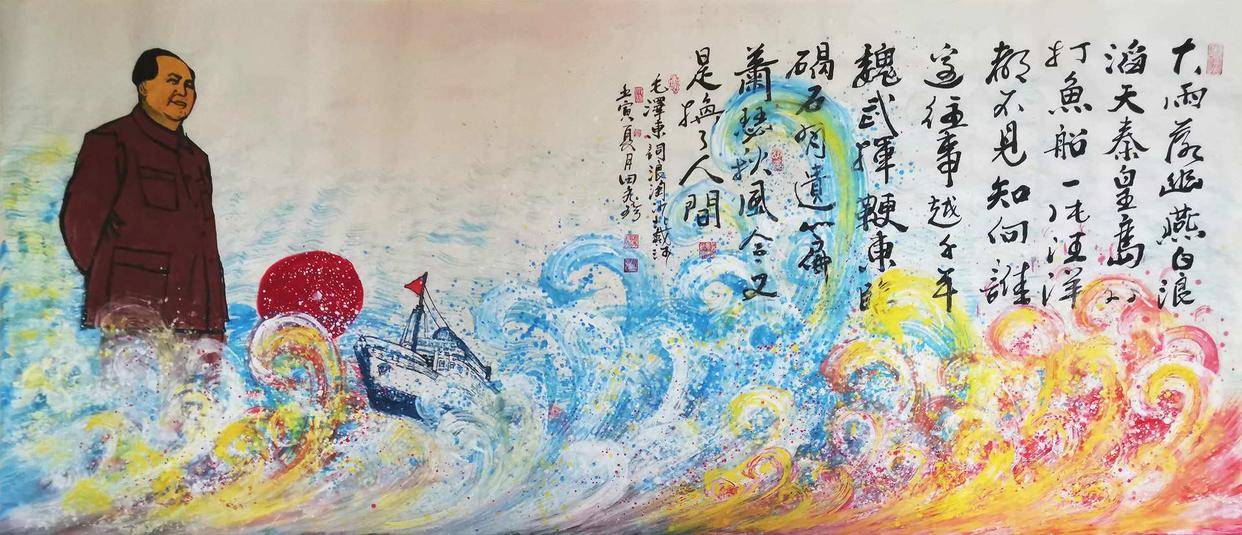 大雨落幽燕白浪
滔天秦皇島外
打魚船一片汪洋
都不見知向誰
邊往事越千年
魏武揮鞭東臨
碣石有遺篇
蕭瑟秋風今又
是換了人間
毛澤東詞浪淘沙北戴河
壬寅夏月田